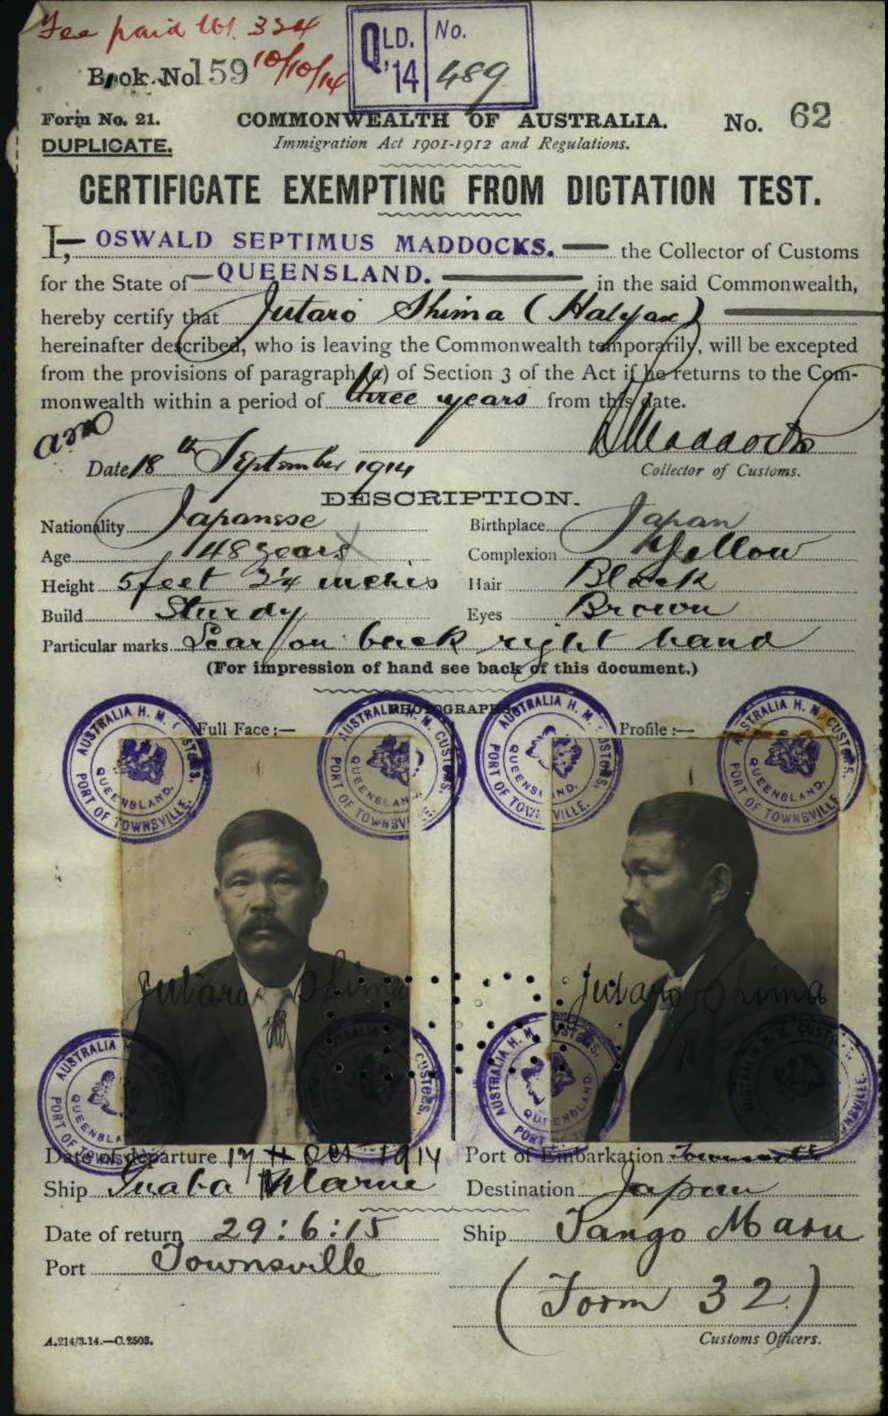 Fee paid
QLD. No.
'14 489
Book No 159 10/10/14
Form No. 21. COMMONWEALTH OF AUSTRALIA. No. 62
DUPLICATE. Immigration Act 1901-1912 and Regulations.
CERTIFICATE EXEMPTING FROM DICTATION TEST.
I, OSWALD SEPTIMUS MADDOCKS. the Collector of Customs
for the State of QUEENSLAND. in the said Commonwealth,
hereby certify that Jutaro Shima (Halifax)
hereinafter described, who is leaving the Commonwealth temporarily, will be excepted
from the provisions of paragraph (a) of Section 3 of the Act if he returns to the Com-
monwealth within a period of three years from this date.
OSMaddocks
Date 18th September 1914 Collector of Customs.
DESCRIPTION.
Nationality Japanese Birthplace Japan
Age 48 years Complexion Yellow
Height 5 feet 3 1/4 inches Hair Black
Build Sturdy Eyes Brown
Particular marks Scar on back right hand
(For impression of hand see back of this document.)
PHOTOGRAPHS.
Full Face :— Profile :—
AUSTRALIA H. M. CUSTOMS. QUEENSLAND. PORT OF TOWNSVILLE.
AUSTRALIA H. M. CUSTOMS. QUEENSLAND. PORT OF TOWNSVILLE.
AUSTRALIA H. M. CUSTOMS. QUEENSLAND. PORT OF TOWNSVILLE.
AUSTRALIA H. M. CUSTOMS. QUEENSLAND. PORT OF TOWNSVILLE.
Jutaro Shima Jutaro Shima
AUSTRALIA CUSTOMS. QUEENSLAND PORT OF TOWNSVILLE
AUSTRALIA H. M. CUSTOMS. QUEENSLAND. PORT
Date of departure 17th Oct 1914 Port of Embarkation Townsville
Ship Inaba Maru Destination Japan
Date of return 29:6:15 Ship Tango Maru
Port Townsville
(Form 32)
A.214/3.14.—C.2503. Customs Officers.